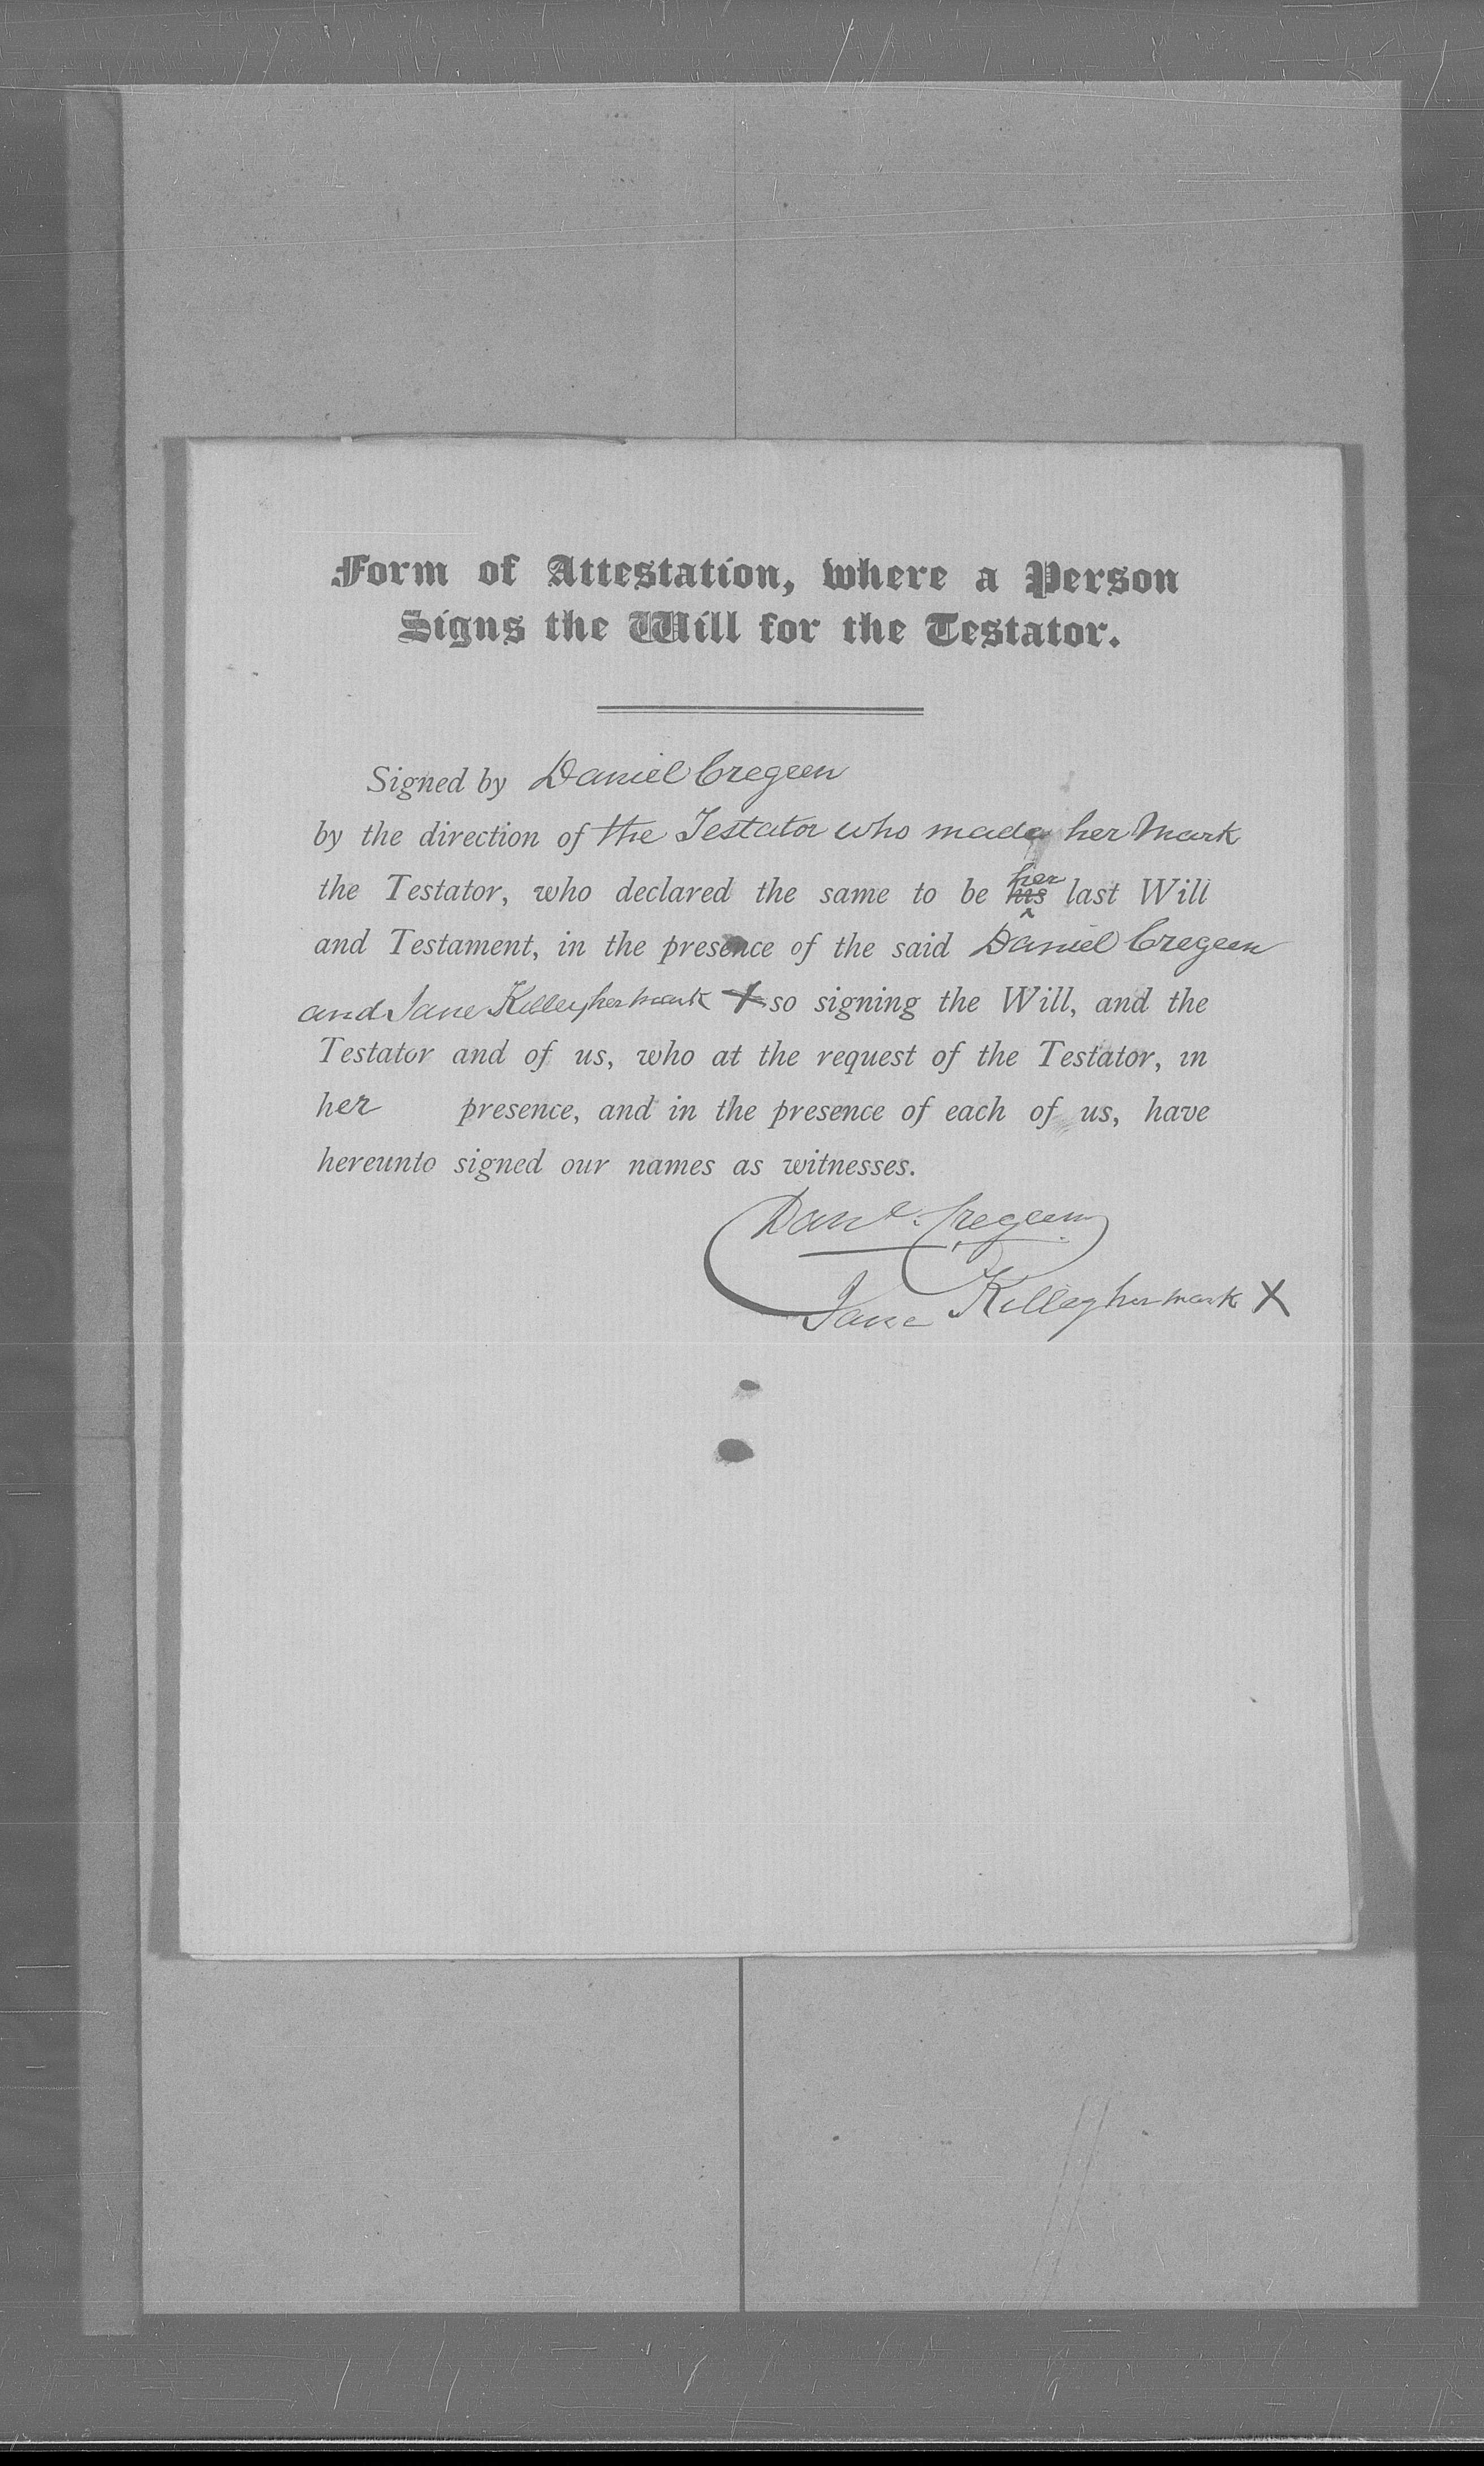 Form of Attestation, where a Person
Signs the Will for the Testator.
Signed by Daniel Cregeen
by the direction of the Testator who made her Mark
the Testator, who declared the same to be his her last Will
and Testament, in the presence of the said Daniel Cregeen
and Jane Killey her mark X so signing the Will, and the
Testator and of us, who at the request of the Testator, in
her presence, and in the presence of each of us, have
hereunto signed our names as witnesses.
Danl. Cregeen
Jane Killey her mark X